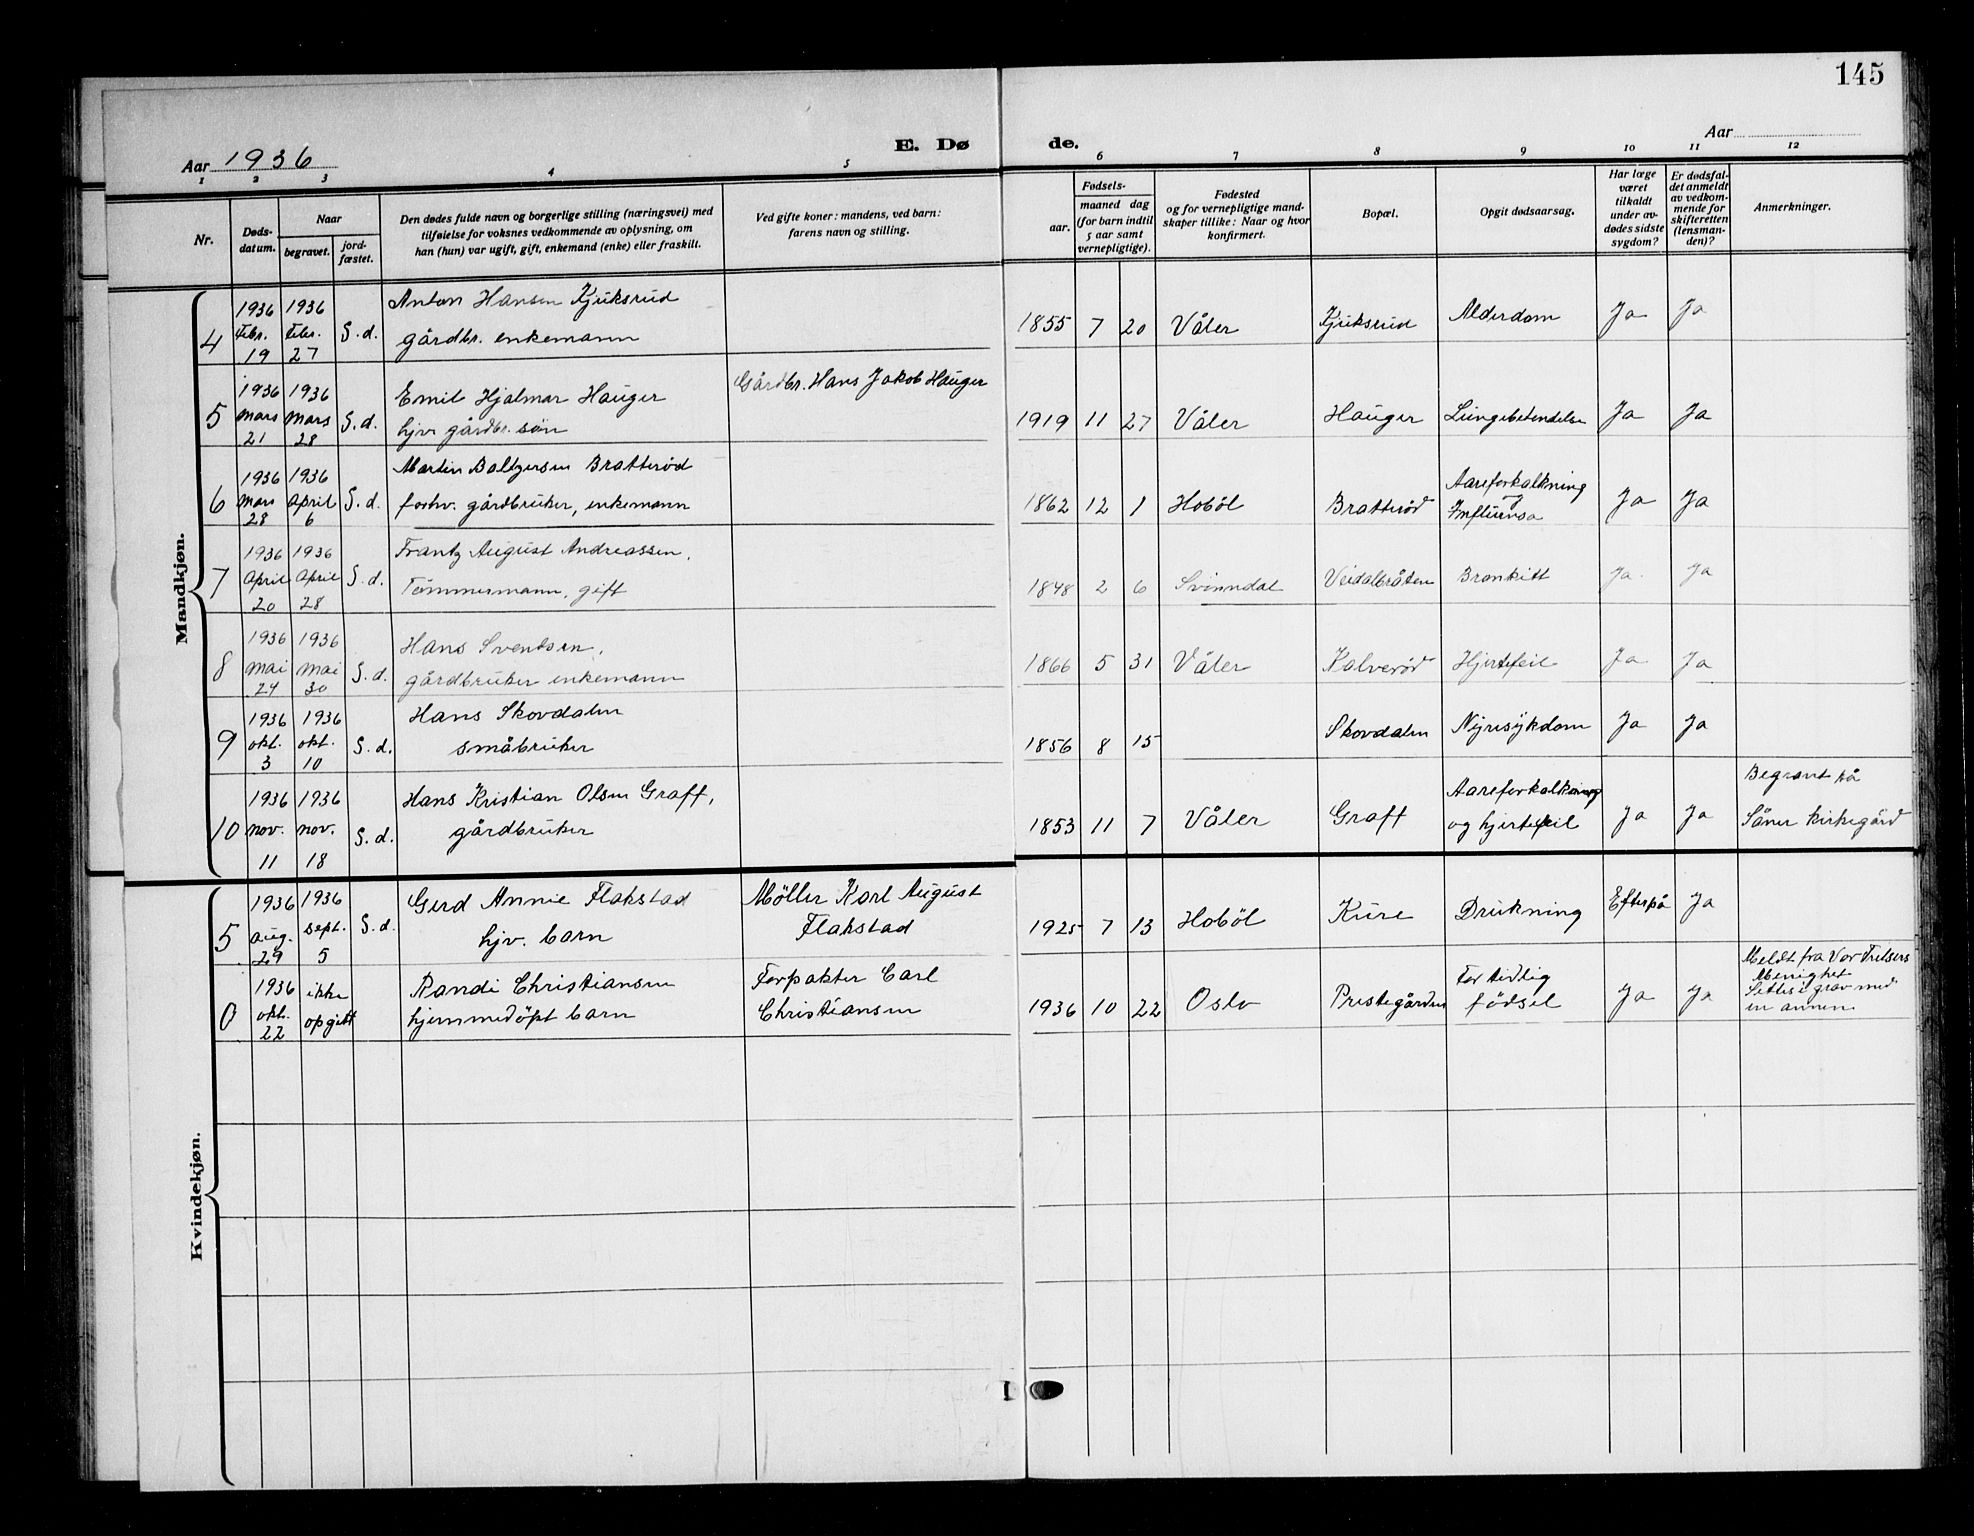 145
Aar 1936
E. Dø
de.
Aar
1 2 3 4 5 6 7 8 9 10 11 12
Nr.
Døds-
datum.
Naar
begravet.
jord-
fæstet.
Den dødes fulde navn og borgerlige stilling (næringsvei) med
tilføielse for voksnes vedkommende av oplysning, om
han (hun) var ugift, gift, enkemand (enke) eller fraskilt.
Ved gifte koner: mandens, ved barn:
farens navn og stilling.
Fødsels-
aar.
maaned dag
(for barn indtil
5 aar samt
vernepligtige).
Fødested
og for vernepligtige mand-
skaper tillike: Naar og hvor
konfirmert.
Bopæl.
Opgit dødsaarsag.
Har læge
været
tilkaldt
under av-
dødes sidste
sygdom?
Er dødsfal-
det anmeldt
av vedkom-
mende for
skifteretten
(lensman-
den)?
Anmerkninger.
Mandkjøn.
4
1936
Febr.
19
1936
Febr.
27
S. d.
Anton Hansen Kjuksrud
gårdbr. enkemann
1855 7 20 Våler Kjuksrud Alderdom Ja Ja
5
1936
Mars
21
1936
Mars
28
S. d.
Emil Hjalmar Hauger
hjv. gårdbr. søn
Gårdbr. Hans Jakob Hauger
1919 11 27 Våler Hauger Lungebetendelse Ja Ja
6
1936
Mars
28
1936
April
6
S. d.
Martin Baltzersen Bratterød
forhv. gårdbruker, enkemann
1862 12 1 Hobøl Bratterød
Aareforkalkning
og
Influensa
Ja Ja
7
1936
April
20
1936
April
28
S. d.
Frantz August Andreassen,
Tømmermann, gift
1848 2 6 Svinndal Veidalbråten Bronkitt Ja. Ja
8
1936
Mai
24
1936
Mai
30
S. d.
Hans Svendsen,
gårdbruker enkemann
1866 5 31 Våler Kalverød Hjertefeil Ja Ja
9
1936
okt.
3
1936
okt.
10
S. d.
Hans Skovdalen
småbruker
1856 8 15 Skovdalen Nyresykdom Ja Ja
10
1936
nov.
11
1936
nov.
18
S. d.
Hans Kristian Olsen Graff,
gårdbruker
1853 11 7 Våler Graff
Aareforkalkning
og hjertefeil
Ja Ja
Begravt på
Såner kirkegård
Kvindekjøn.
5
1936
Aug.
29
1936
sept.
5
S. d.
Gerd Annie Flakstad
hjv. barn
Møller Karl August
Flakstad
1925 7 13 Hobøl Kure Drukning Efterpå Ja
0
1936
okt.
22
ikke
opgitt
Randi Christiansen
hjemmedøpt barn
Forpakter Carl
Christiansen
1936 10 22 Oslo Prestegården
For tidlig
fødsel
Ja Ja
Meldt fra Vor Frelsers
Menighet
Settes i grav med
en annen.